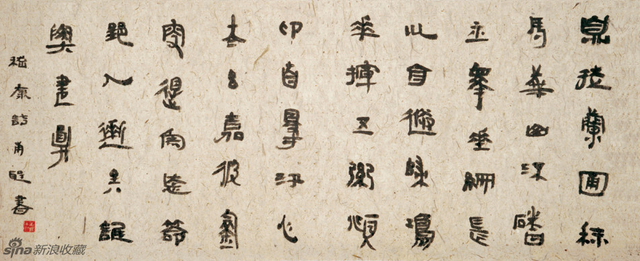 息徒蘭圃秣
馬華山流磻
平皋垂綸長
川目送歸鴻
手揮五弦頫
仰自得游心
太玄嘉彼釣
叟得魚忘筌
郢人逝矣誰
與盡言
嵇康詩 書
sina新浪收藏